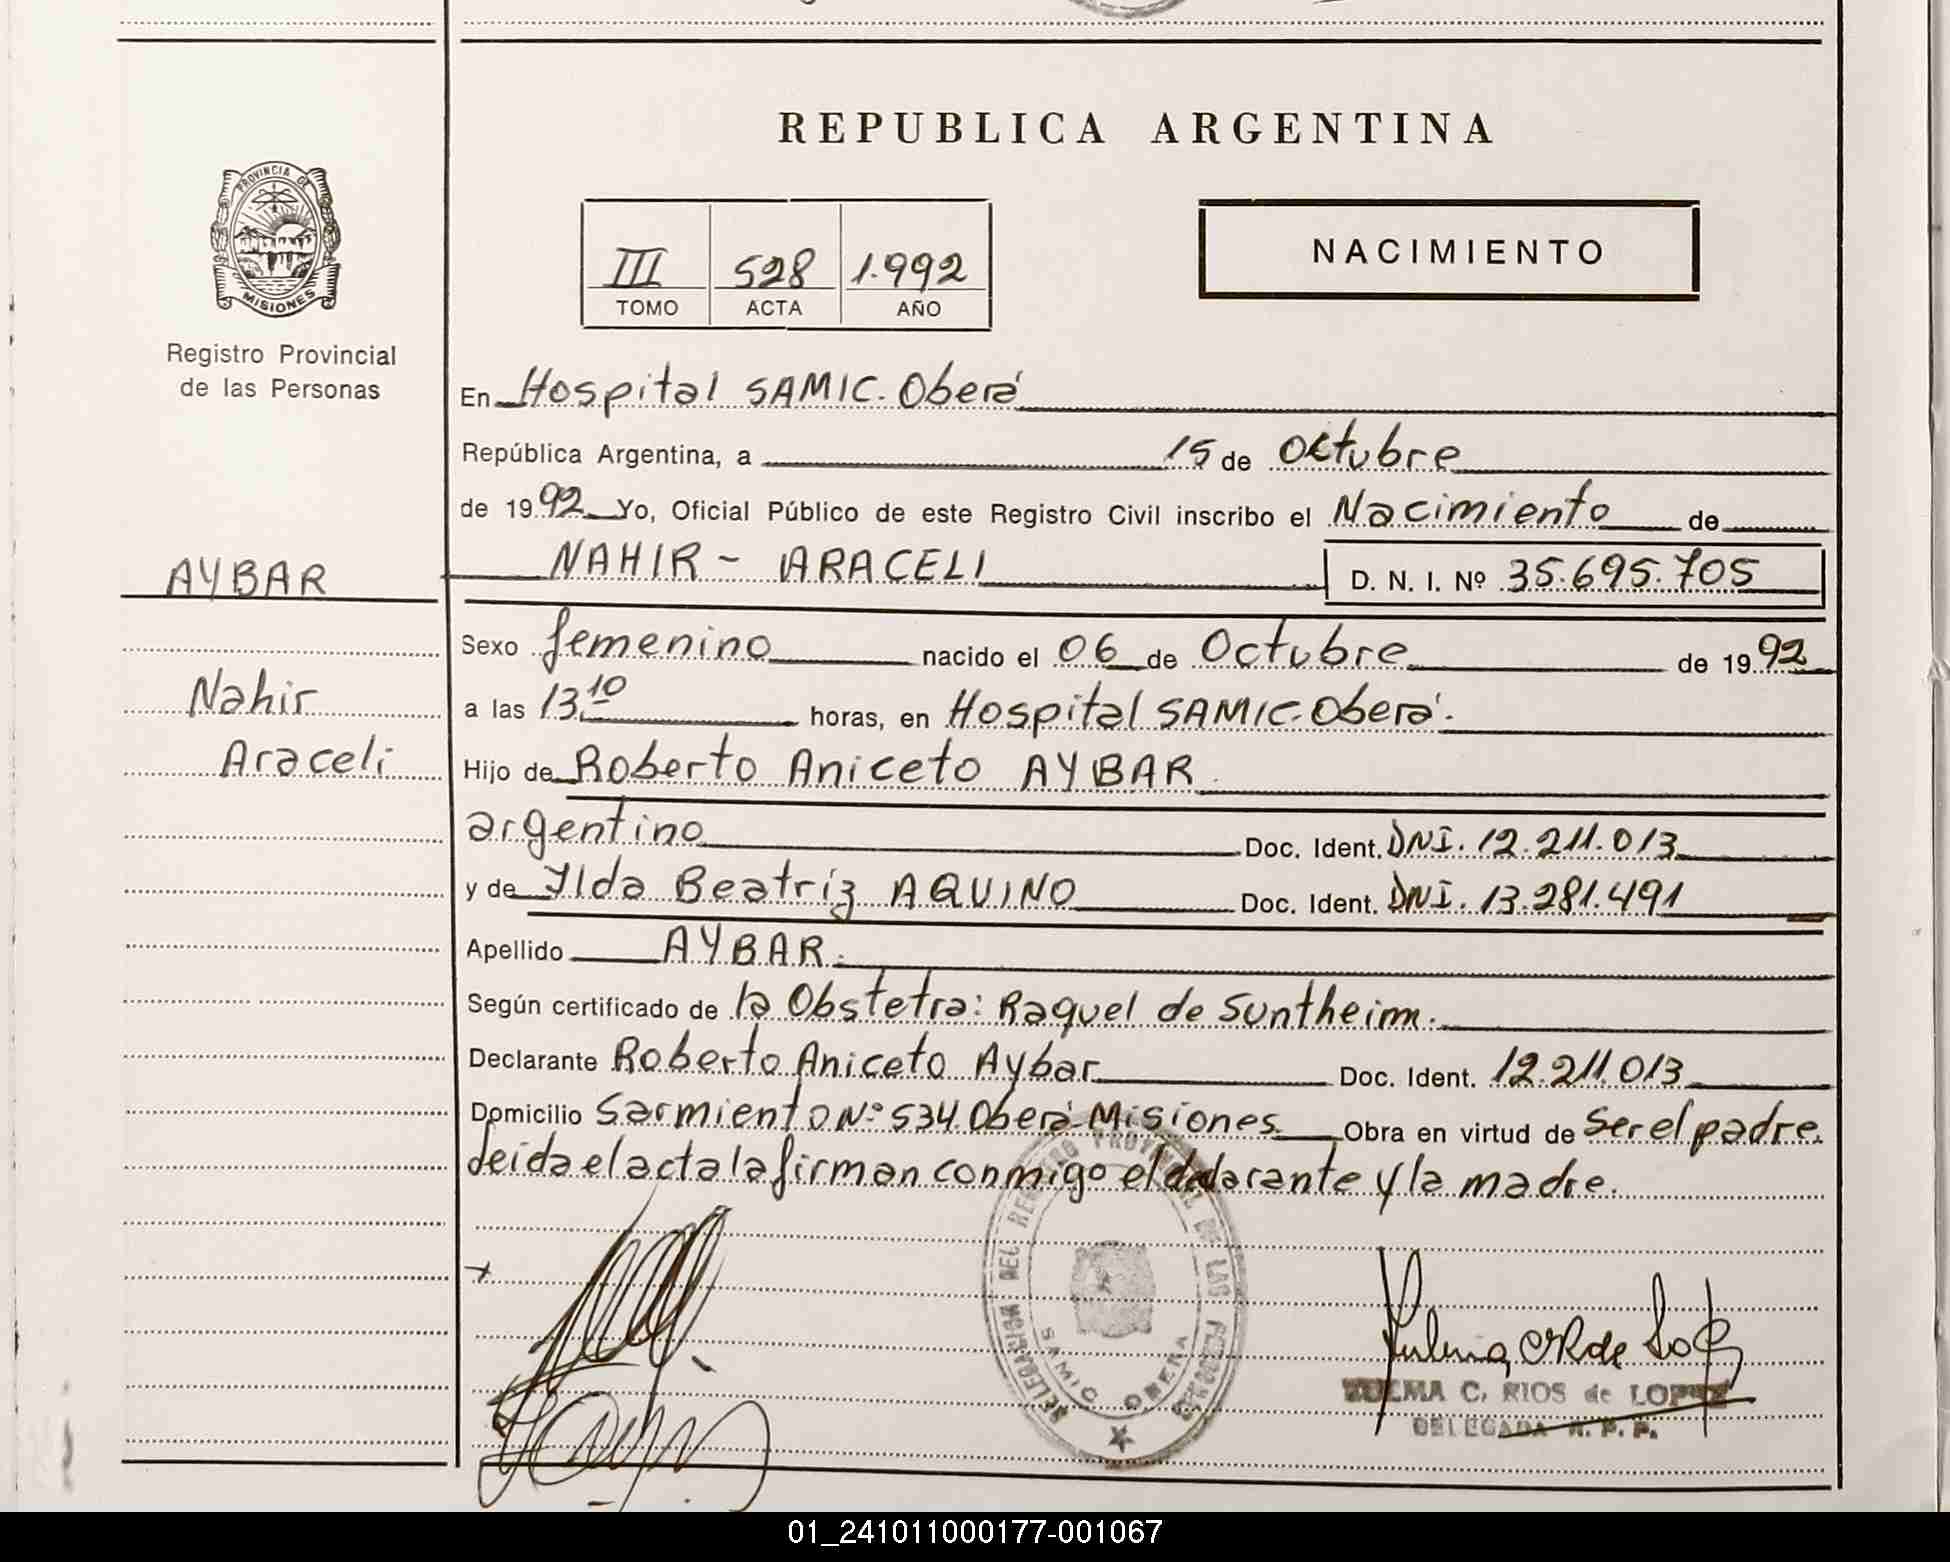 REPUBLICA ARGENTINA
PROVINCIA DE
MISIONES
Registro Provincial
de las Personas
III 528 1.992
TOMO ACTA AÑO
NACIMIENTO
En Hospital SAMIC. Oberá
República Argentina, a 15 de Octubre
de 1992 Yo, Oficial Público de este Registro Civil inscribo el Nacimiento de
AYBAR
NAHIR - ARACELI D. N. I. Nº 35.695.705
Sexo femenino nacido el 06 de Octubre de 1992
Nahir
a las 13.10 horas, en Hospital SAMIC. Oberá.
Araceli
Hijo de Roberto Aniceto AYBAR.
argentino Doc. Ident. DNI. 12.211.013
y de Ylda Beatríz AQUINO Doc. Ident. DNI. 13.281.491
Apellido AYBAR.
Según certificado de la Obstetra: Raquel de Suntheim.
Declarante Roberto Aniceto Aybar Doc. Ident. 12.211.013
Domicilio Sarmiento Nº 534. Oberá Misiones Obra en virtud de Ser el padre.
Leida el acta la firman conmigo el declarante y la madre.
DELEGACION DEL REGISTRO PROVINCIAL DE LAS PERSONAS
SAMIC OBERA
ZULMA C. RIOS de LOPEZ
DELEGADA R. P. P.
01_241011000177-001067